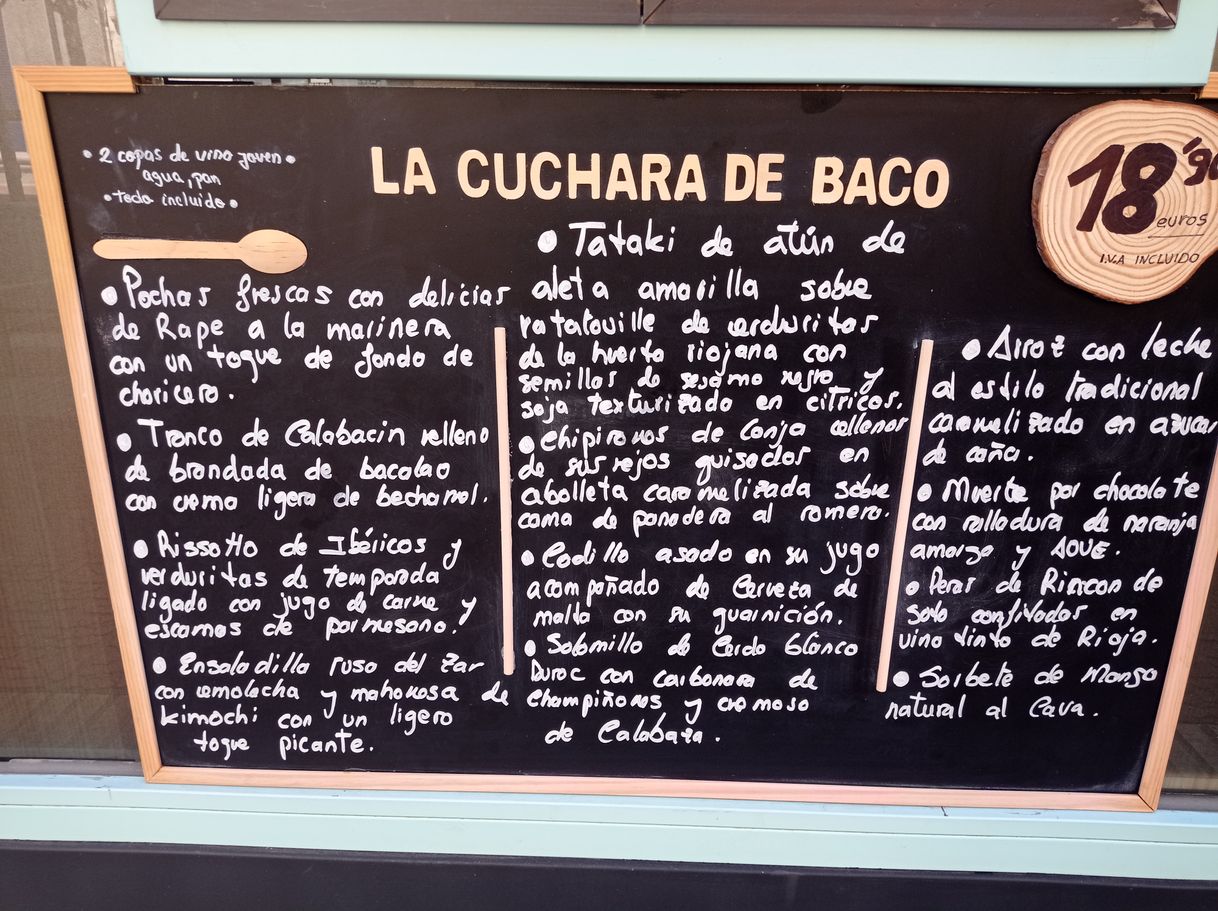 • 2 copas de vino joven •
agua, pan
• todo incluido •
LA CUCHARA DE BACO
18'90
euros
I.V.A INCLUIDO
• Pochas frescas con delicias
de Rape a la marinera
con un toque de fondo de
choricero.
• Tronco de Calabacin relleno
de brandada de bacalao
con crema ligera de bechamel.
• Rissotto de Ibéricos y
verduritas de temporada
ligado con jugo de carne y
escamas de parmesano.
• Ensaladilla rusa del Zar
con remolacha y mahonesa de
kimochi con un ligero
toque picante.
• Tataki de atún de
aleta amarilla sobre
ratatouille de verduritas
de la huerta riojana con
semillas de sesamo negro y
soja texturizado en citricos.
• Chipirones de Lonja rellenos
de sus rejos guisados en
abolleta caramelizada sobre
cama de panadera al romero.
• Codillo asado en su jugo
acompañado de Cerveza de
malta con su guarnición.
• Solomillo de Cerdo blanco
Duroc con carbonara de
Champiñones y cremoso
de Calabaza.
• Arroz con leche
al estilo tradicional
caramelizado en azucar
de caña.
• Muerte por chocolate
con ralladura de naranja
amarga y AOVE.
• Peras de Rincon de
Soto confitadas en
vino tinto de Rioja.
• Sorbete de Mango
natural al Cava.